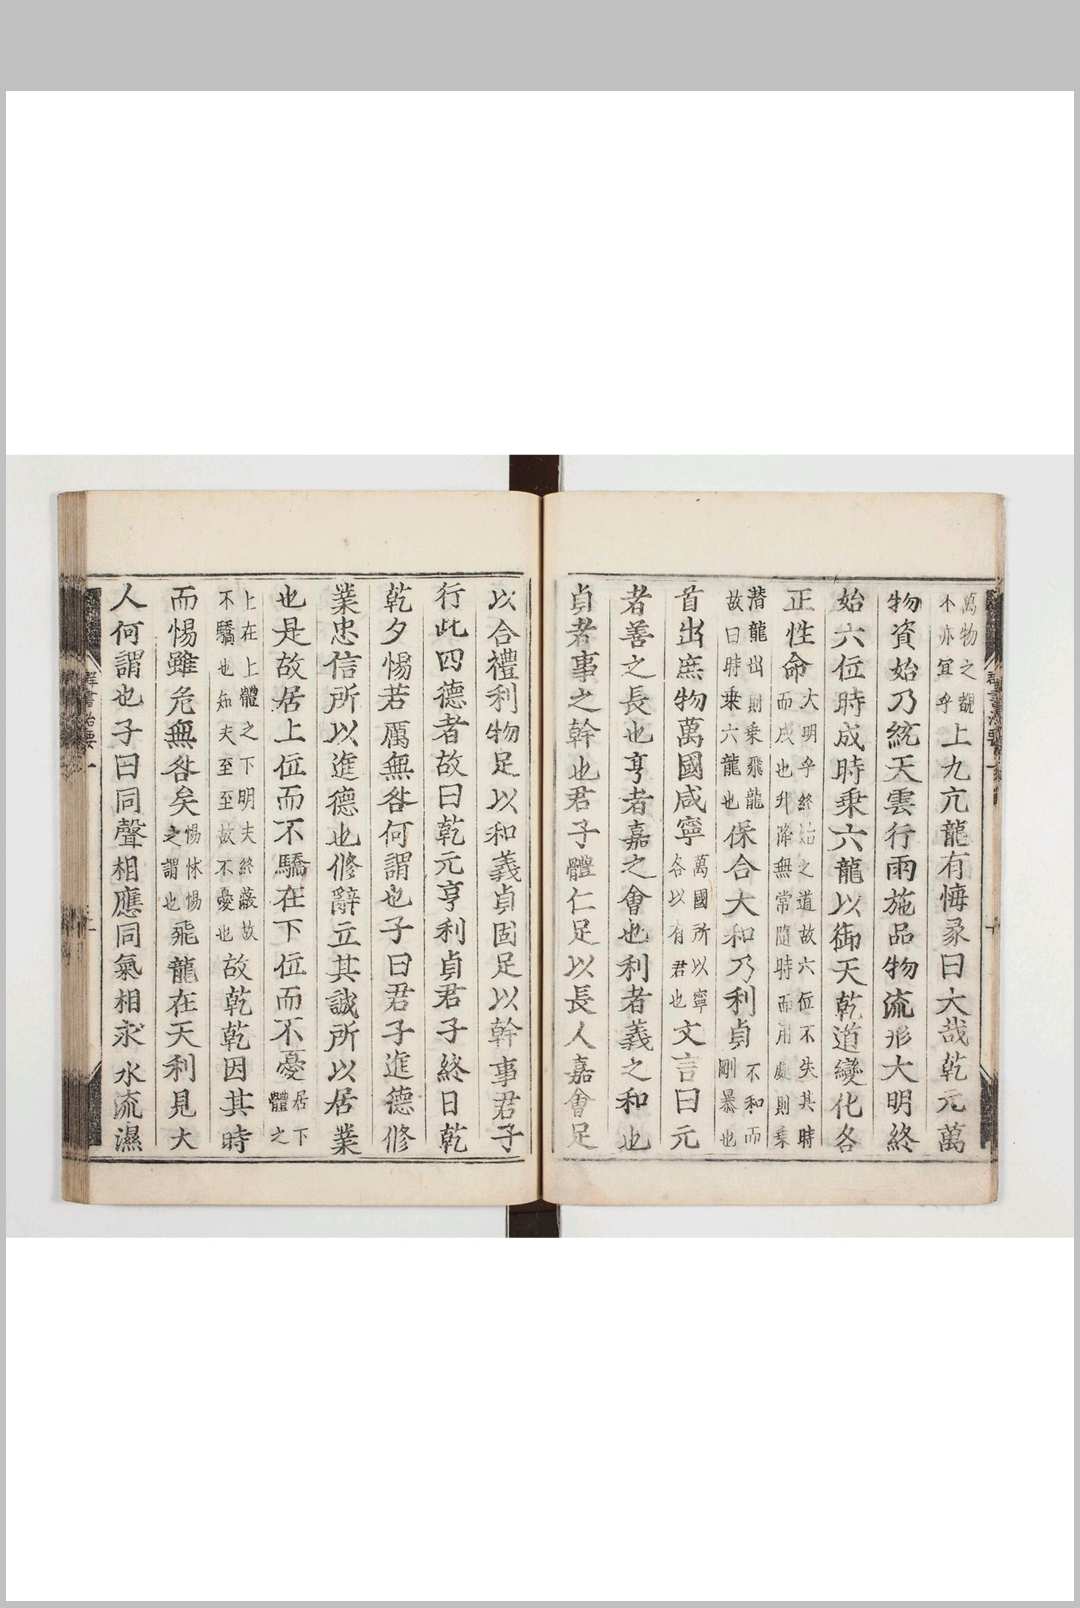 萬物之覩不亦宜乎上九亢龍有悔彖曰大哉乾元萬
物資始乃統天雲行雨施品物流形大明終
始六位時成時乗六龍以御天乾道變化各
正性命大明乎終始之道故六位不失其時而成也升降無常隨時而用處則乗
潜龍出則乗飛龍故曰時乗六龍也保合大和乃利貞不和而剛暴也
首出庶物萬國咸寧萬國所以寧各以有君也文言曰元
者善之長也亨者嘉之會也利者義之和也
貞者事之幹也君子體仁足以長人嘉會足
以合禮利物足以和義貞固足以幹事君子
行此四德者故曰乾元亨利貞君子終日乾
乾夕惕若厲無咎何謂也子曰君子進德修
業忠信所以進德也修辭立其誠所以居業
也是故居上位而不驕在下位而不憂居下體之
上在上體之下明夫終敝故不驕也知夫至至故不憂也故乾乾因其時
而惕雖危無咎矣惕怵惕之謂也飛龍在天利見大
人何謂也子曰同聲相應同氣相求水流濕
群書治要一